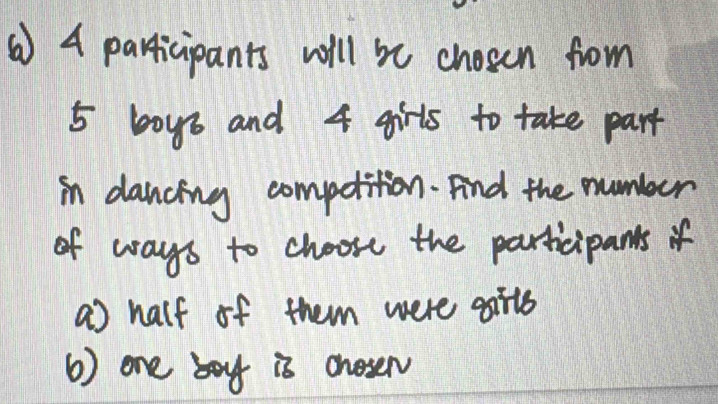 6) 4 participants will be chosen from
5 boys and 4 girls to take part
in dancing competition. Find the number
of ways to choose the participants if
a) half of them were girls
b) one boy is chosen